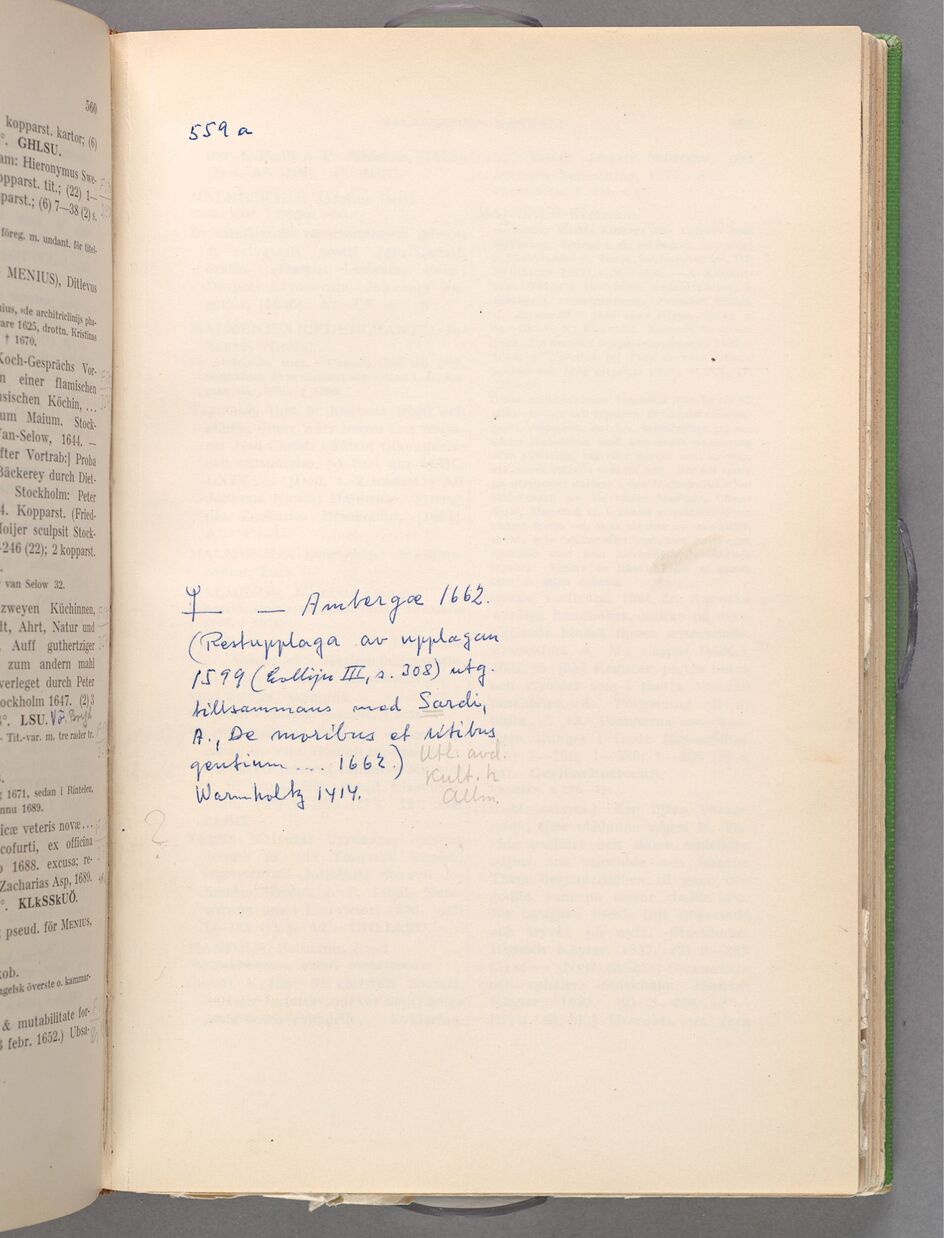 560
kopparst. kartor; (6)
GHLSU.
am: Hieronymus Swe-
opparst. tit.; (22) 1—
parst.; (6) 7—38 (2) s.
föreg. m. undant. för titel-
MENIUS), Ditlevus
nius, »de architriclinijs pha-
are 1625, drottn. Kristinas
† 1670.
Koch-Gesprächs Vor-
n einer flamischen
nsischen Köchin, ...
um Maium. Stock-
Van-Selow, 1644. —
fter Vortrab:] Proba
Bäckerey durch Diet-
Stockholm: Peter
4. Kopparst. (Fried-
Moijer sculpsit Stock-
-246 (22); 2 kopparst.
van Selow 32.
zweyen Küchinnen,
lt, Ahrt, Natur und
Auff guthertziger
zum andern mahl
verleget durch Peter
ockholm 1647. (2) 3
8°. LSU.
- Tit.-var. m. tre rader tr.
1671, sedan i Rinteler,
nnu 1689.
icæ veteris novæ...
cofurti, ex officina
o 1688. excusa; re-
Zacharias Asp, 1689.
°. KLkSSkUÖ.
pseud. för MENIUS,
kob.
ngelsk överste o. kammar-
& mutabilitate for-
3 febr. 1652.) Ubsa-
559 a
— Ambergæ 1662.
(Restupplaga av upplagan
1599 (Collijn III, s. 308) utg.
tillsammans med Sardi,
A., De moribus et ritibus
gentium ... 1662.)
Warmholtz 1414.
Utl. avd.
Kult. h
Allm.
?